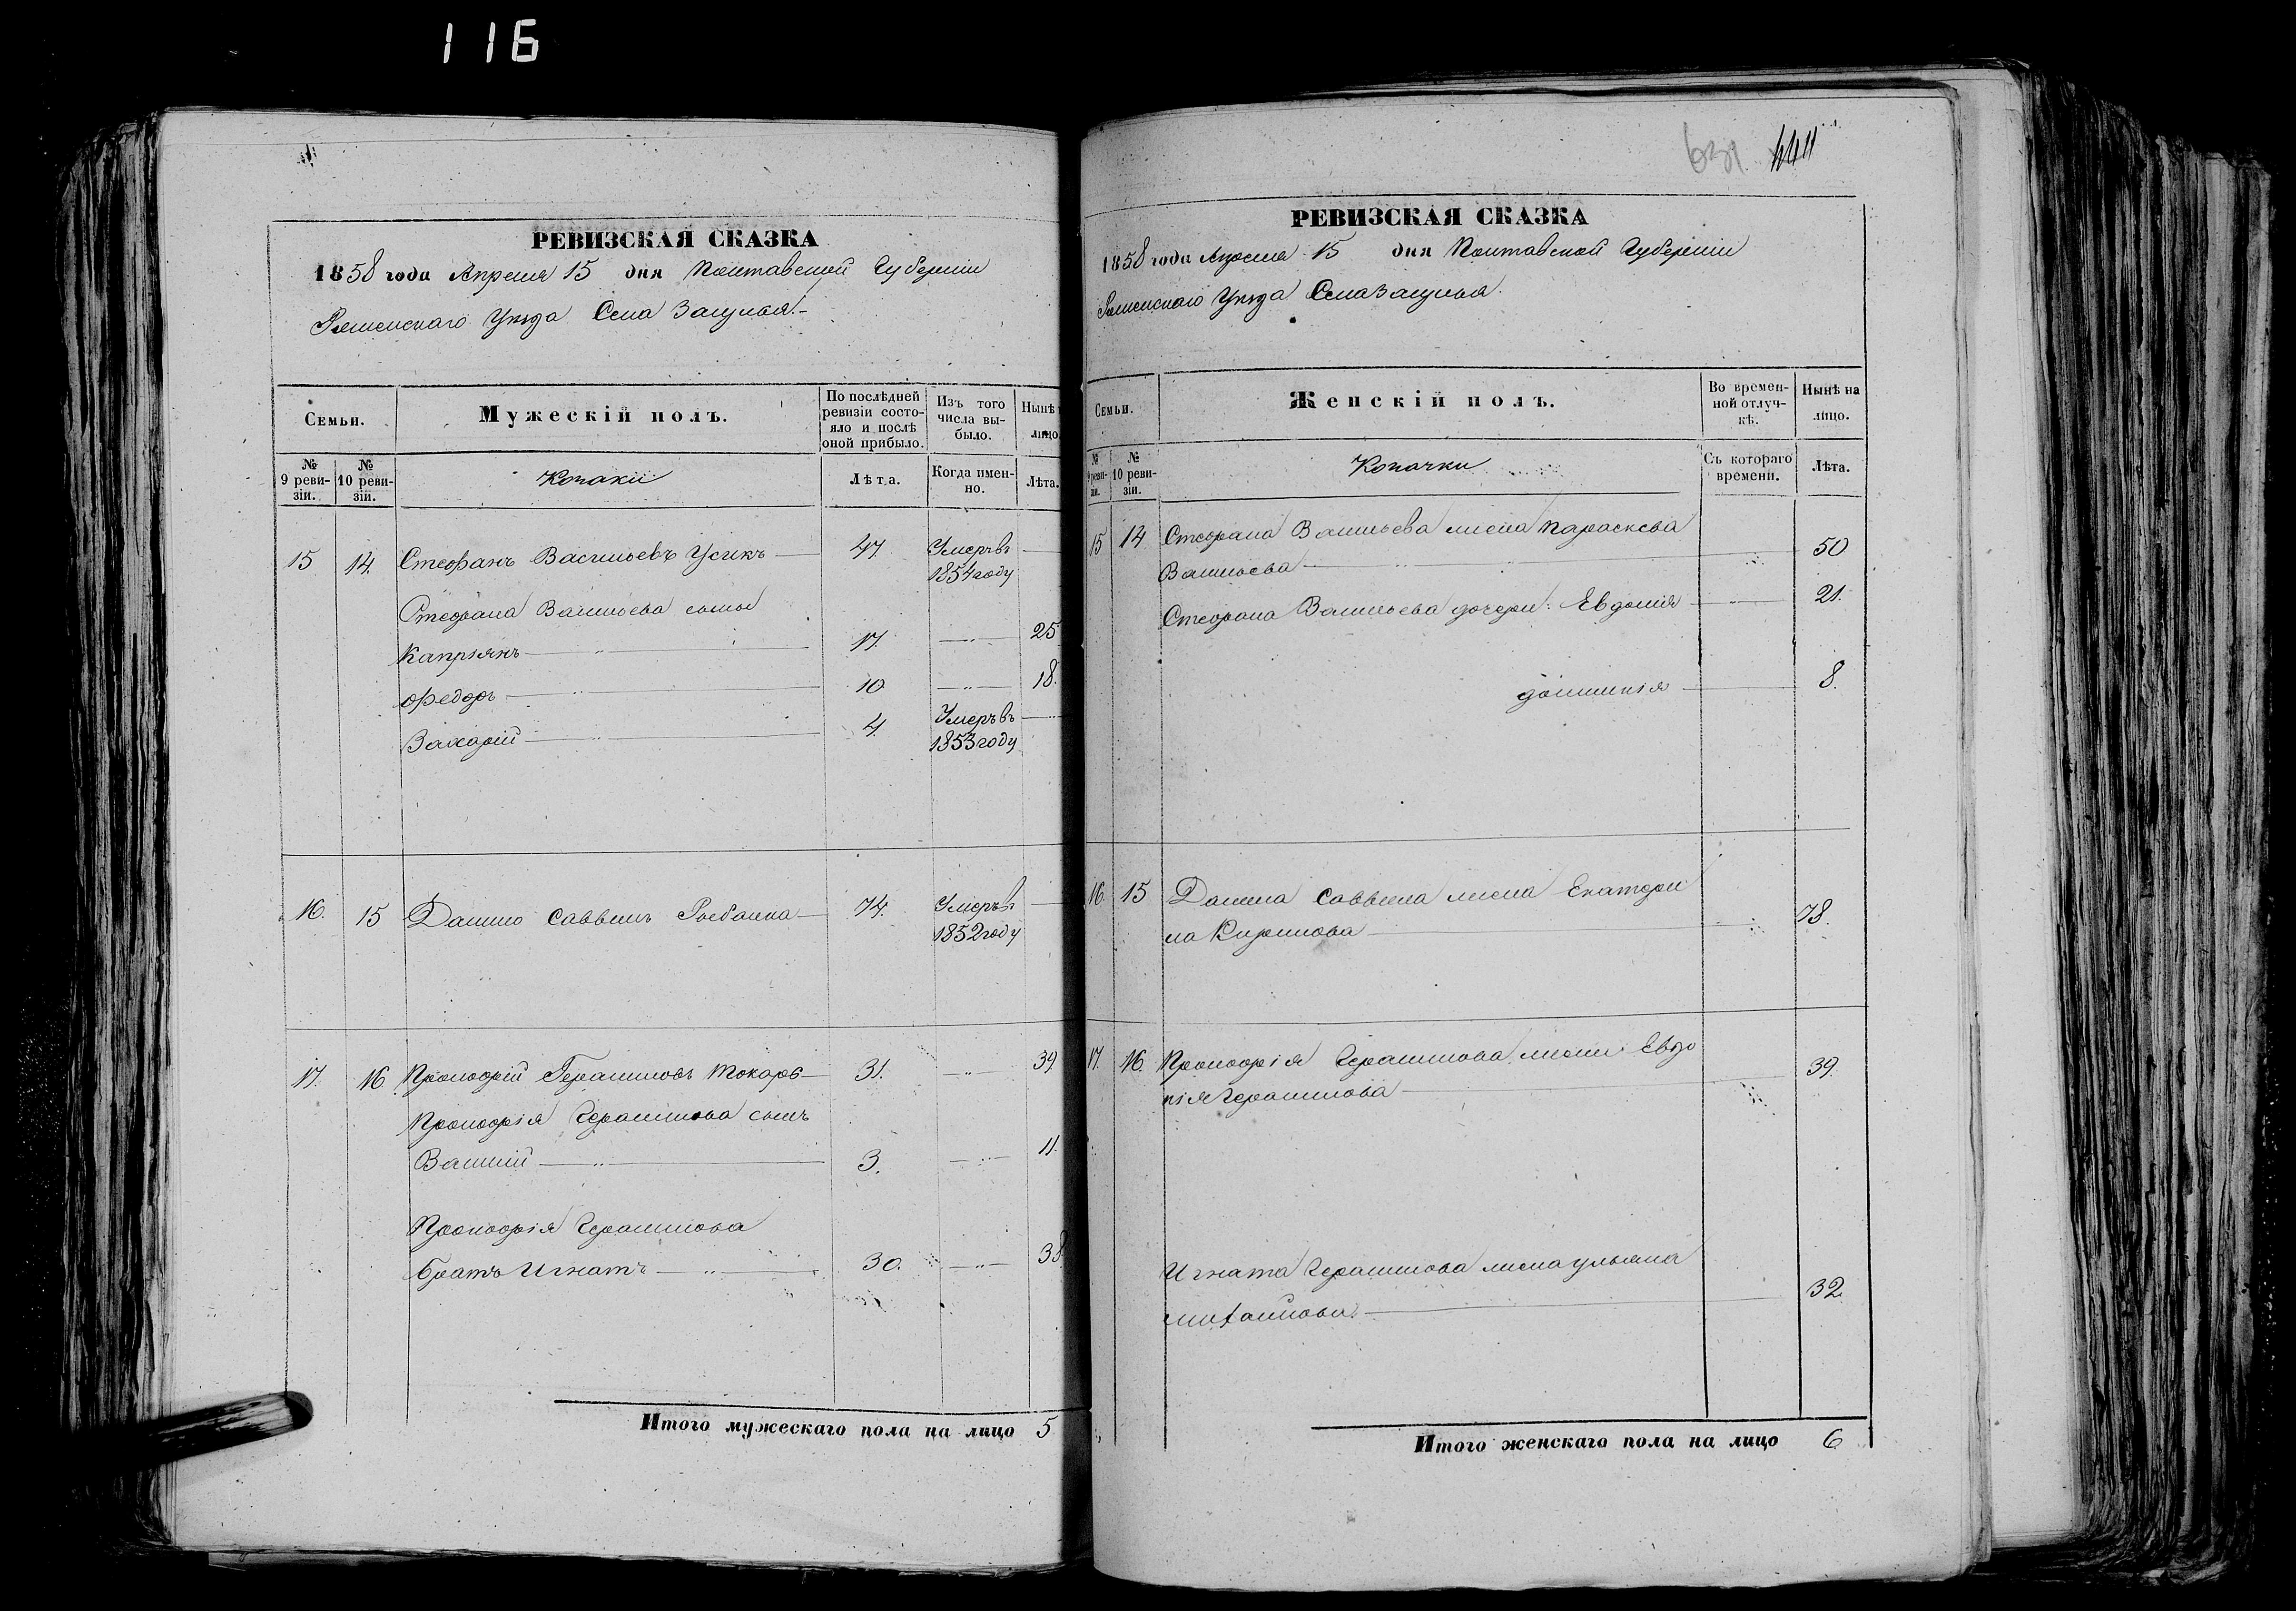 116
РЕВИЗСКАЯ СКАЗКА
1858 года Апреля 15 дня Полтавской Губерніи
Роменскаго Уѣзда Села Засулья.
Семьи.
Мужескій полъ.
По послѣдней ревизіи состояло и послѣ оной прибыло.
Изъ того числа выбыло.
Нынѣ
лицо
№ 9 ревизіи.
№ 10 ревизіи.
Козаки
Лѣта.
Когда именно.
Лѣта.
15 14 Стефанъ Васильевъ Усикъ 47. Умеръ въ 1854 году
Стефана Васильева сынъ
Капріянъ 17. 25
Федоръ 10 18.
Захарій 4. Умеръ въ 1853 году
16. 15 Данило Саввинъ 74. Умеръ въ 1852 году
17. 16 Прокофій Герасимовъ Токарь 31. 39
Прокофія Герасимова сынъ
Василій 3. 11.
Прокофія Герасимова
братъ Игнатъ 30. 38
Итого мужескаго пола на лицо 5
639
РЕВИЗСКАЯ СКАЗКА
1858 года Апреля 15 дня Полтавской Губерніи
Роменскаго Уѣзда Села Засулья.
Семьи.
Женскій полъ.
Во временной отлучкѣ.
Нынѣ на лицо.
№ 9 ревизіи.
№ 10 ревизіи.
Козачки
Съ котораго времени.
Лѣта.
15 14 Стефана Васильева жена Параскева
Васильева 50
Стефана Васильева дочери: Евдокія 21.
8.
16. 15 Данила Саввина жена Екатери
на Кирилова 78.
17. 16. Прокофія Герасимова жена Евдо
кія Герасимова 39.
Игната Герасимова жена Ульяна
Михайлова 32.
Итого женскаго пола на лицо 6